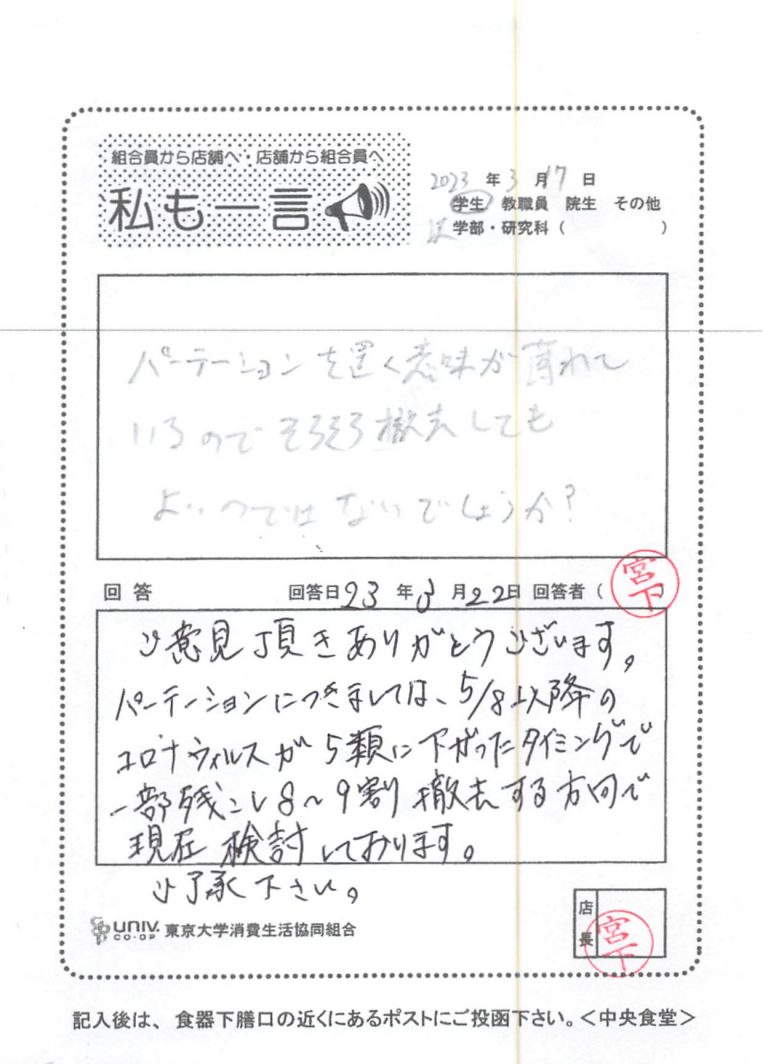 組合員から店舗へ・店舗から組合員へ
私も一言
2023 年 3 月 17 日
学生 教職員 院生 その他
法 学部・研究科（ ）
パーテーションを置く意味が薄れて
いるのでそろそろ撤去しても
よいのではないでしょうか?
回答 回答日 23 年 3 月 22日 回答者（ 宮下 ）
ご意見頂きありがとうございます。
パーテーションにつきましては、5/8以降の
コロナウィルスが5類に下がったタイミングで
一部残こし8〜9割撤去する方向で
現在検討しております。
ご了承下さい。
UNIV. CO-OP 東京大学消費生活協同組合
店長 宮下
記入後は、食器下膳口の近くにあるポストにご投函下さい。＜中央食堂＞